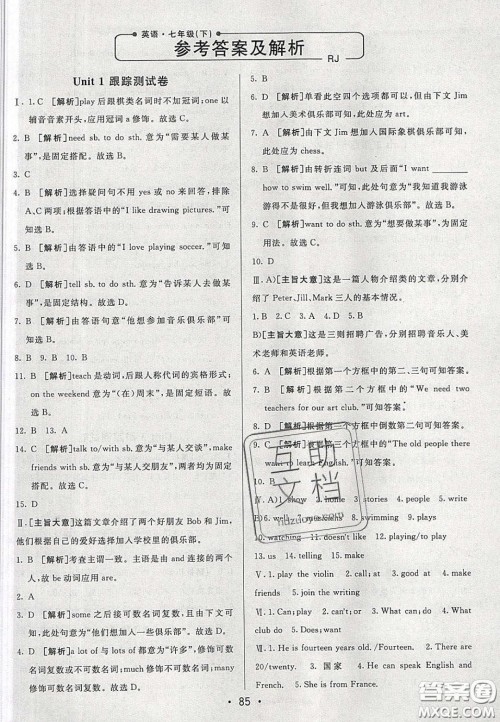 英语·七年级(下)
参考答案及解析
RJ
Unit 1 跟踪测试卷
Ⅰ. 1. C [解析]play后跟棋类名词时不加冠词;one以
辅音音素开头,应用冠词a修饰。故选C。
2. B [解析]need sb. to do sth. 意为“需要某人做某
事”,是固定搭配。故选B。
3. C
4. B [解析]选择疑问句不用yes或no来回答,排除
A、C两项;根据答语中的“I like drawing pictures.”可
知选B。
5. B [解析]由答语中的“I love playing soccer.”可知
选B。
6. D [解析]tell sb. to do sth. 意为“告诉某人做某
事”,是固定结构。故选D。
7. D [解析]由答语句意“他想参加音乐俱乐部”可知
选D。
8. B 9. B 10. B
11. B [解析]teach是动词,后跟人称代词的宾格形式;
on the weekend意为“(在)周末”,是固定搭配。故
选B。
12. B 13. A
14. C [解析]talk to/with sb. 意为“与某人交谈”,make
friends with sb. 意为“与某人交朋友”,两者都是固定
搭配。故选C。
15. D
Ⅱ. [主旨大意]这篇文章介绍了两个好朋友Bob和Jim,
他们根据自己的爱好选择加入学校里的俱乐部。
1. B [解析]考查主谓一致。主语是由and连接的两个
人,故be动词应用are。
2. A
3. D [解析]some之后接可数名词复数,且由下文可
知,此处句意为“他们想加入一些俱乐部”。故选D。
4. D [解析]a lot of与lots of都为“许多”,修饰可数名
词复数或不可数名词;much修饰不可数名词;many
修饰可数名词复数。故选D。
5. B
6. D [解析]单看此空四个选项都可以,但由下文Jim
想加入美术俱乐部可知,此处应为art。故选D。
7. A [解析]由下文Jim想加入国际象棋俱乐部可知,
此处应为chess。故选A。
8. B [解析]由转折连词but及后面“I want ______
how to swim well.”可知,此句意为“我知道我游泳
游得不是很好,但我想加入游泳俱乐部”。故选B。
9. C [解析]want to do sth. 意为“想要做某事”,为固
定结构。故选C。
10. D
Ⅲ. A)[主旨大意]这是一篇人物介绍类的文章,分别介绍
了Peter、Jill、Mark三人的基本情况。
B)[主旨大意]这是三则招聘广告,分别招聘音乐人、
美术老师和英语老师。
6. B [解析]根据第一个方框中第二、三句可知答案。
7. A [解析]根据第二个方框中的“We need two
teachers for our art club.”可知答案。
8. D [解析]根据第二个方框中倒数第二句可知答案。
9. C [解析]根据第三个方框中的“The old people there
want to learn English.”可知答案。
10. B
Ⅳ. A)1. show 2. home 3. story 4. drums 5. speak
B)6. well 7. swimming 8. drawing 9. writing
10. makes 11. doesn't 12. playing/to play
13. us 14. telling 15. musicians
Ⅴ. 1. play the violin 2. call at 3. and, and
4. can't, or 5. make friends
Ⅵ. 1. He is fourteen years old. 2. There are
20/twenty. 3. 国家 4. He can speak English and
French. 5. His friend is from France./He is from
85
互助文档
huzuoy.com